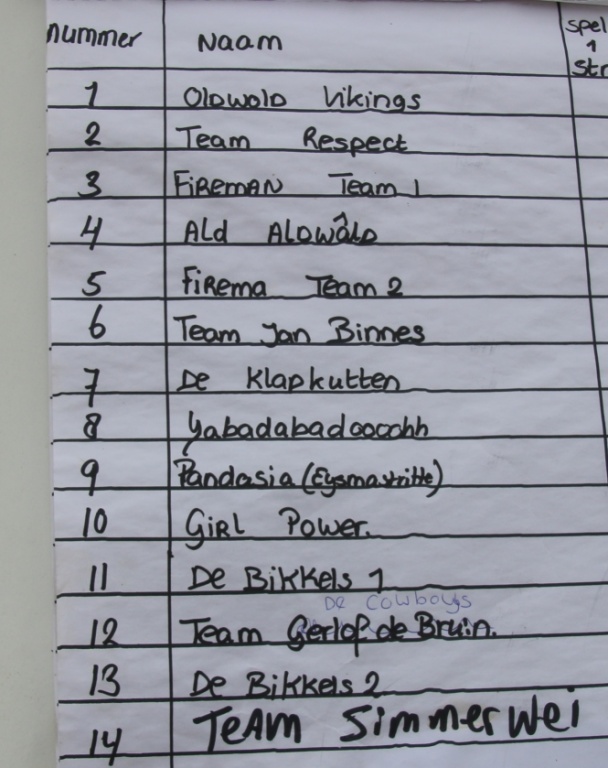 nummer Naam spel
1
str
1 Oldwold Vikings
2 Team Respect
3 FiREMAN Team 1
4 Ald Aldwâld
5 FiRema Team 2
6 Team Jan Binnes
7 De Klapkutten
8 Yabadabadooochh
9 Pandasia (Eysmastritte)
10 GiRL Power.
11 De Bikkels 1
De Cowboys
12 Team Gerlof de Bruin.
13 De Bikkels 2
14 TeAM Simmerwei